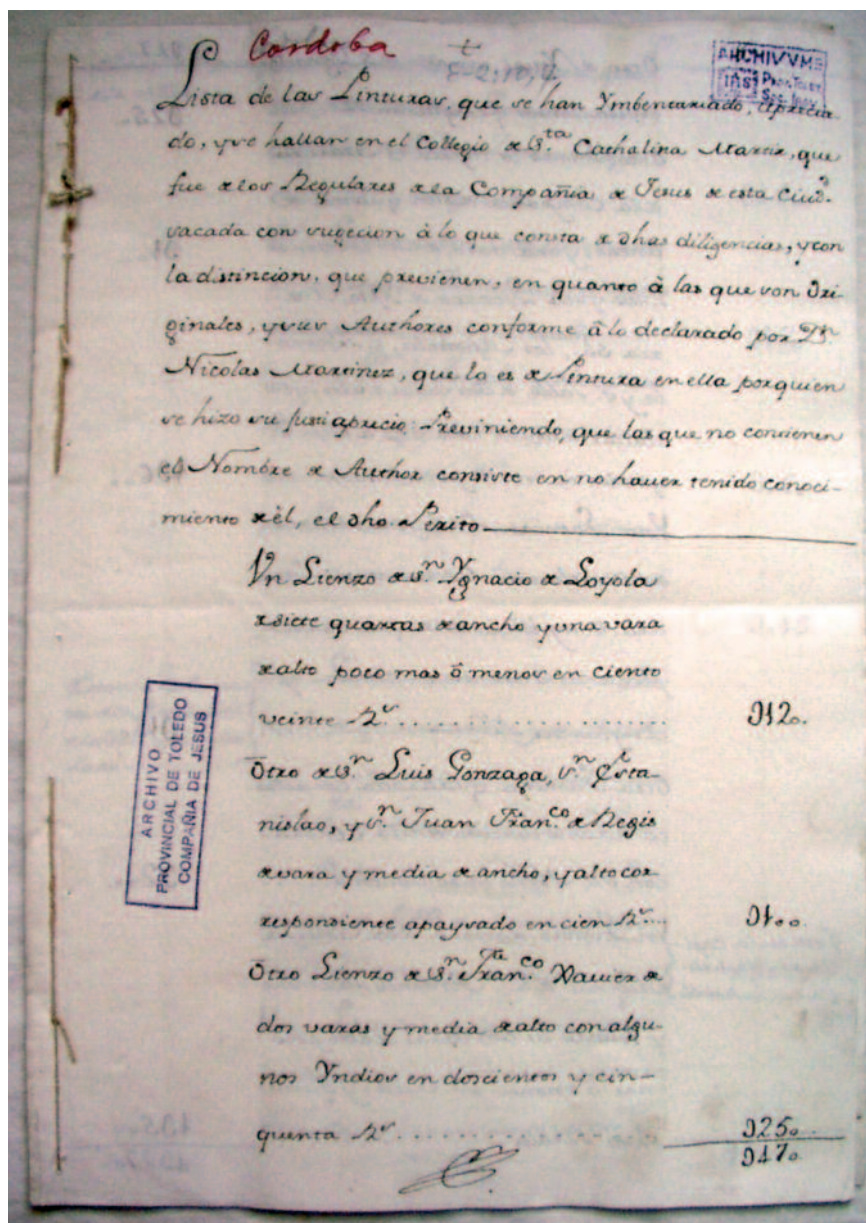 Cordoba
ARCHIVVMS
Lista de las Pinturas, que se han Ymbentariado, Aprecia-
do, y se hallan en el Collegio de S.ta Cathalina Martir, que
fue de los Regulares de la Compañia de Jesus de esta Ciud.d
sacada con sugecion à lo que consta de dhas diligencias, y con
la distincion, que previenen, en quanto à las que son Ori-
ginales, y sus Authores conforme à lo declarado por Dn
Nicolas Martinez, que lo es de Pintura en ella por quien
se hizo su justiaprecio: Previniendo, que las que no contienen
el Nombre de Author consiste en no haver tenido conoci-
miento de èl, el dho Perito
Vn Lienzo de S.n Ygnacio de Loyola
de siete quartas de ancho y una vara
de alto poco mas ô menos en ciento
veinte R.s .................... 0120.
Otro de S.n Luis Gonzaga, S.n Esta-
nislao, y S.n Juan Fran.co de Regis
de vara y media de ancho, y alto cor-
respondiente apaysado en cien R.s .... 0100
Otro Lienzo de S.n Fran.co Xavier de
dos varas y media de alto con algu-
nos Yndios en doscientos y cin-
quenta R.s .............. 0250
0470
ARCHIVO
PROVINCIAL DE TOLEDO
COMPAÑIA DE JESUS